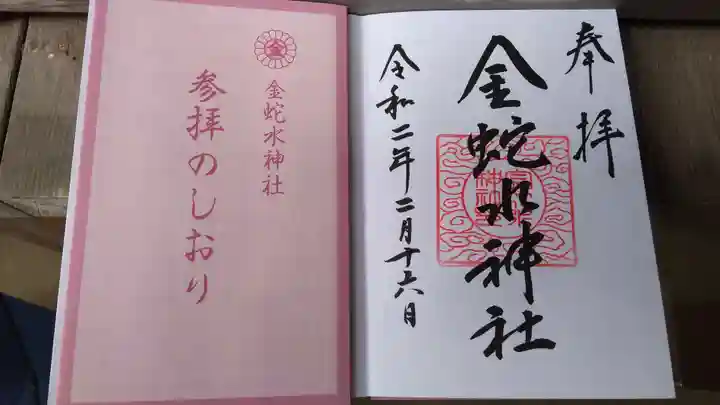 奉拝
金蛇水神社
令和二年二月十六日
金
金蛇水神社
参拝のしおり